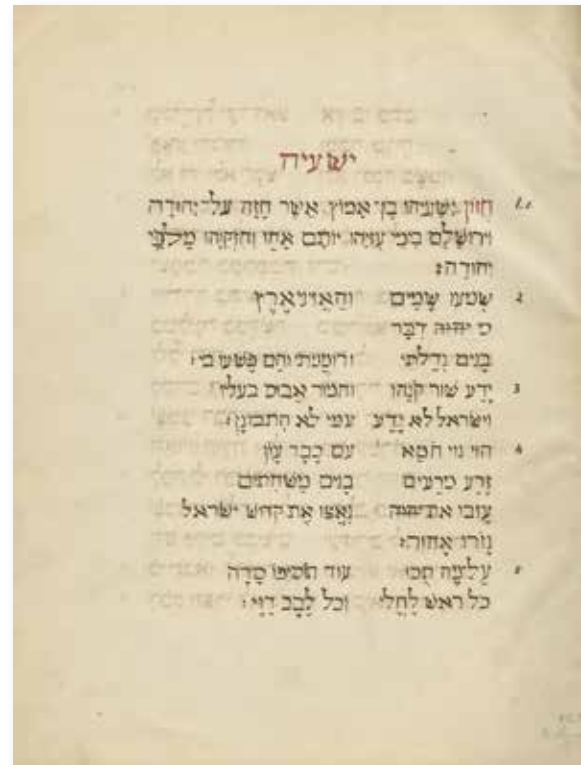 ישעיה
1,1 חזון ישעיהו בן אמוץ אשר חזה על יהודה
וירושלם בימי עזיהו יותם אחז יחזקיהו מלכי
יהודה:
2 שמעו שמים והאזיני ארץ
כי יהוה דבר
בנים גדלתי ורוממתי והם פשעו בי:
3 ידע שור קנהו וחמור אבוס בעליו
ישראל לא ידע עמי לא התבונן:
4 הוי גוי חטא עם כבד עון
זרע מרעים בנים משחיתים
עזבו את יהוה נאצו את קדוש ישראל
נזרו אחור:
5 על מה תכו עוד תוסיפו סרה
כל ראש לחלי וכל לבב דוי: